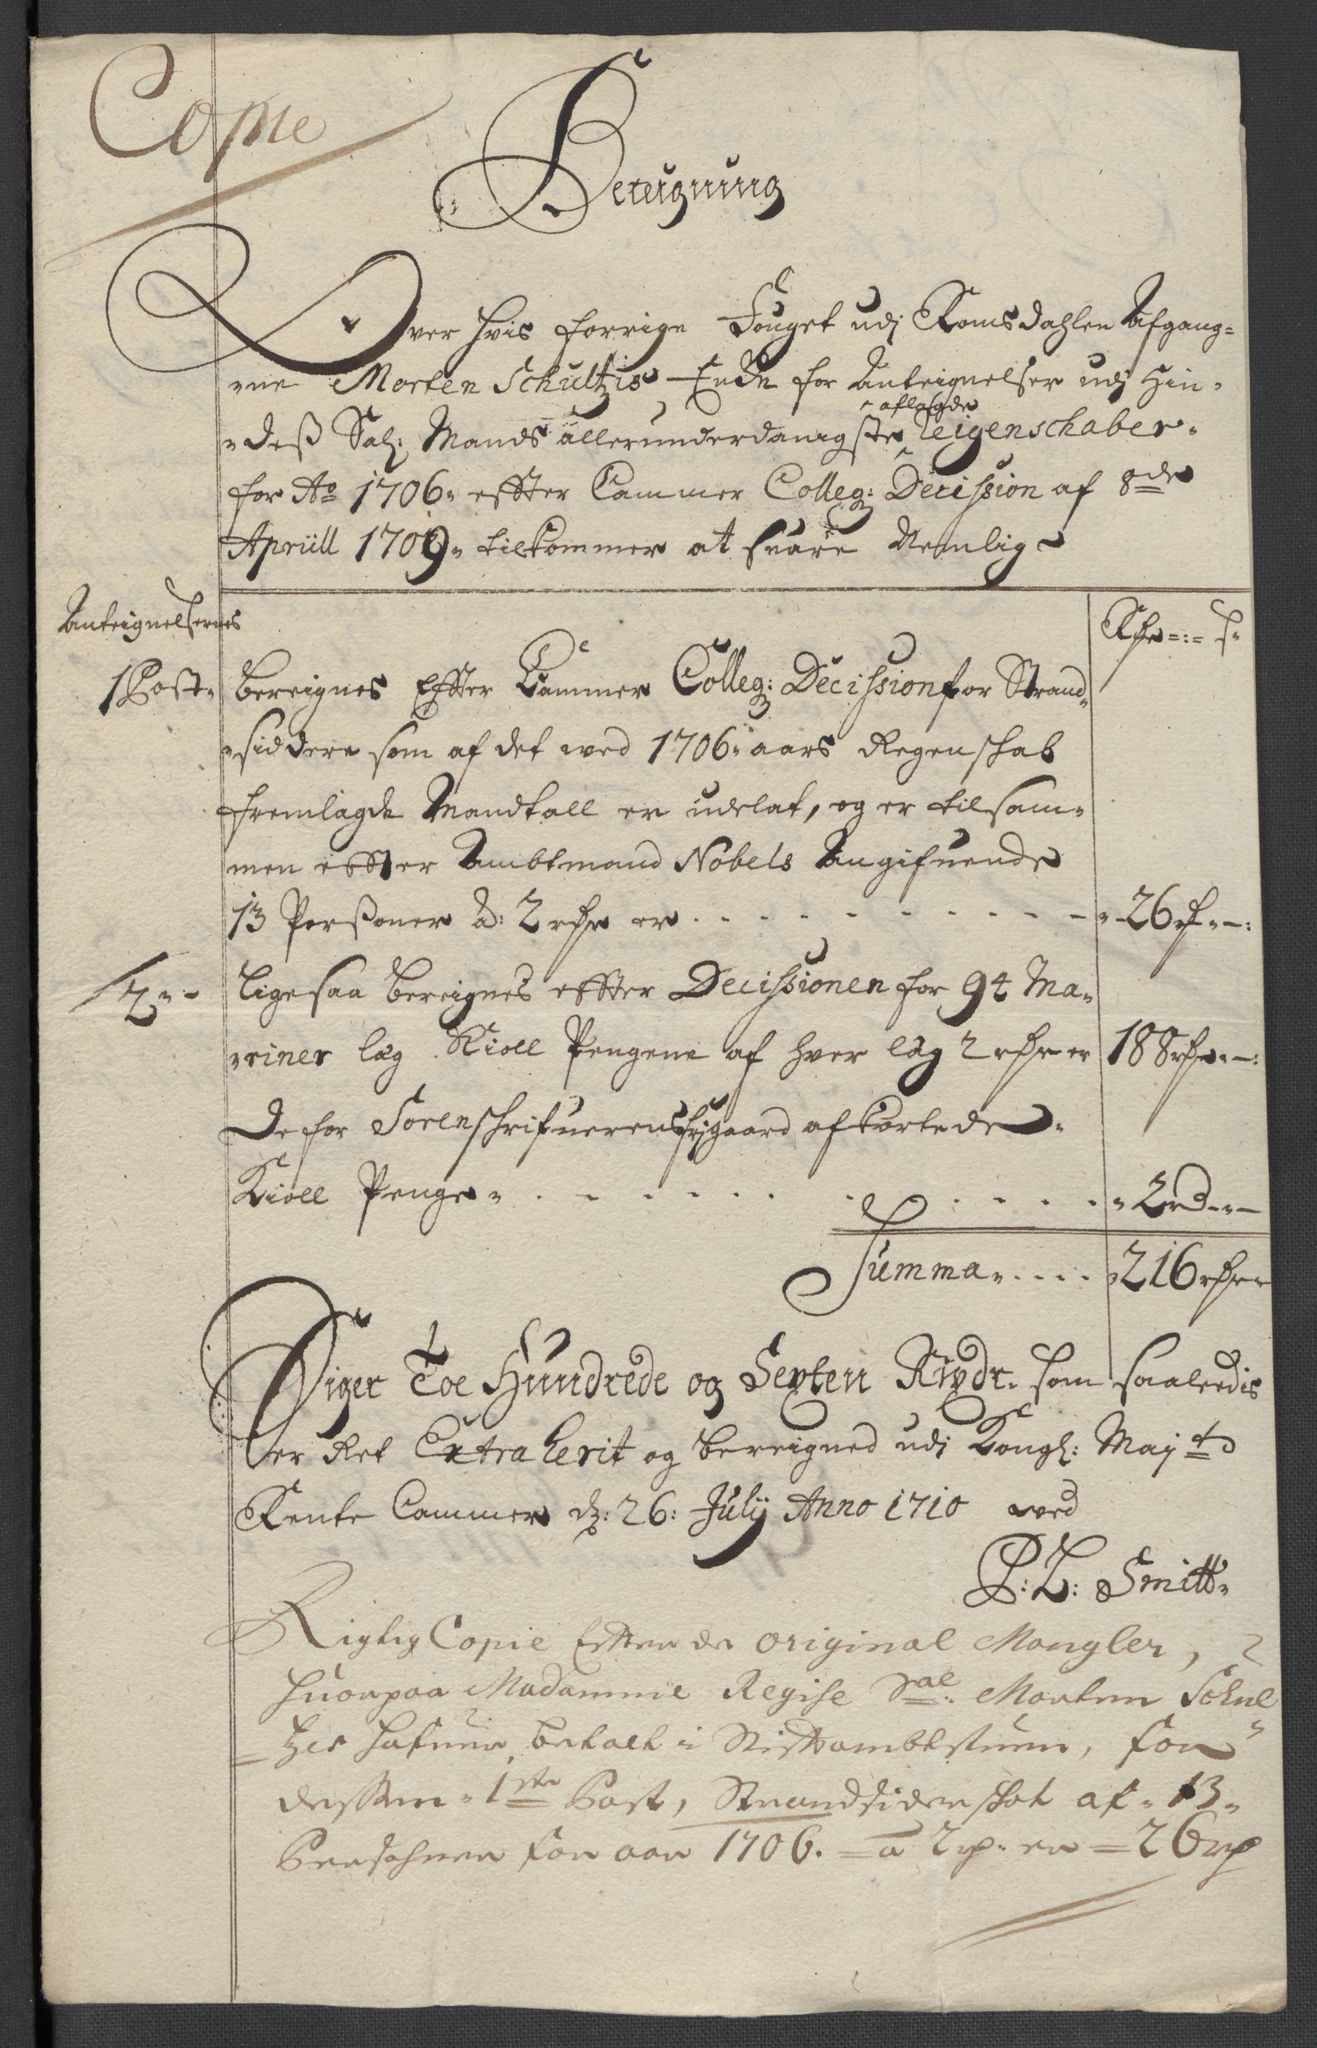 Copie
Bereigning
Over hvis forrige Fouget udj Romsdahlen Afgang-
ne Morten Schultzis Encke for Anteignelser udj Hin-
des Sal: Mands allerunderdanigste aflagde Reigenschaber
for Ao 1706 effter Cammer Colleg: Decission af 8de
Aprill 1709 tilkommer at svare Nemlig
Anteignelsernes
Rdr s
1 Post Bereignes Effter Cammer Colleg: Decission for Strand-
siddere som af det ved 1706 aars Regenschab
fremlagde Mandtall er udelat, og er tilsam-
men effter Ambtmand Nobels Angifuende
13 Persohner a: 2 rdr er 26 r
2 Ligesaa bereignes effter Decissionen for 94 Ma-
riner læg Kioll Pengene af hver læg 2 rdr er 188 rdr
De for Sorenschrifuerens frigaard afkortede
Kioll Penge 2 rd
Summa 216 rdr
Siger Toe Hundrede og Sexten Rixdr. som saaledis
er Ret Extraherit og bereigned udj Kongl: Mayts
Rente Cammer d: 26: Julij Anno 1710 ved
P: L: Smitt
Rigtig Copie Efter de original Mangler,
huorpaa Madamme Regise Sal: Morten Schul-
tzes hafuer betalt i Stiftambtstuen, for
dessen 1ste Post, Strandsidderskat af 13
Persohner for aar 1706. a 2 rd: er 26 rd